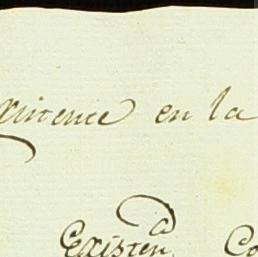 xistence en la
Existen.ª Co